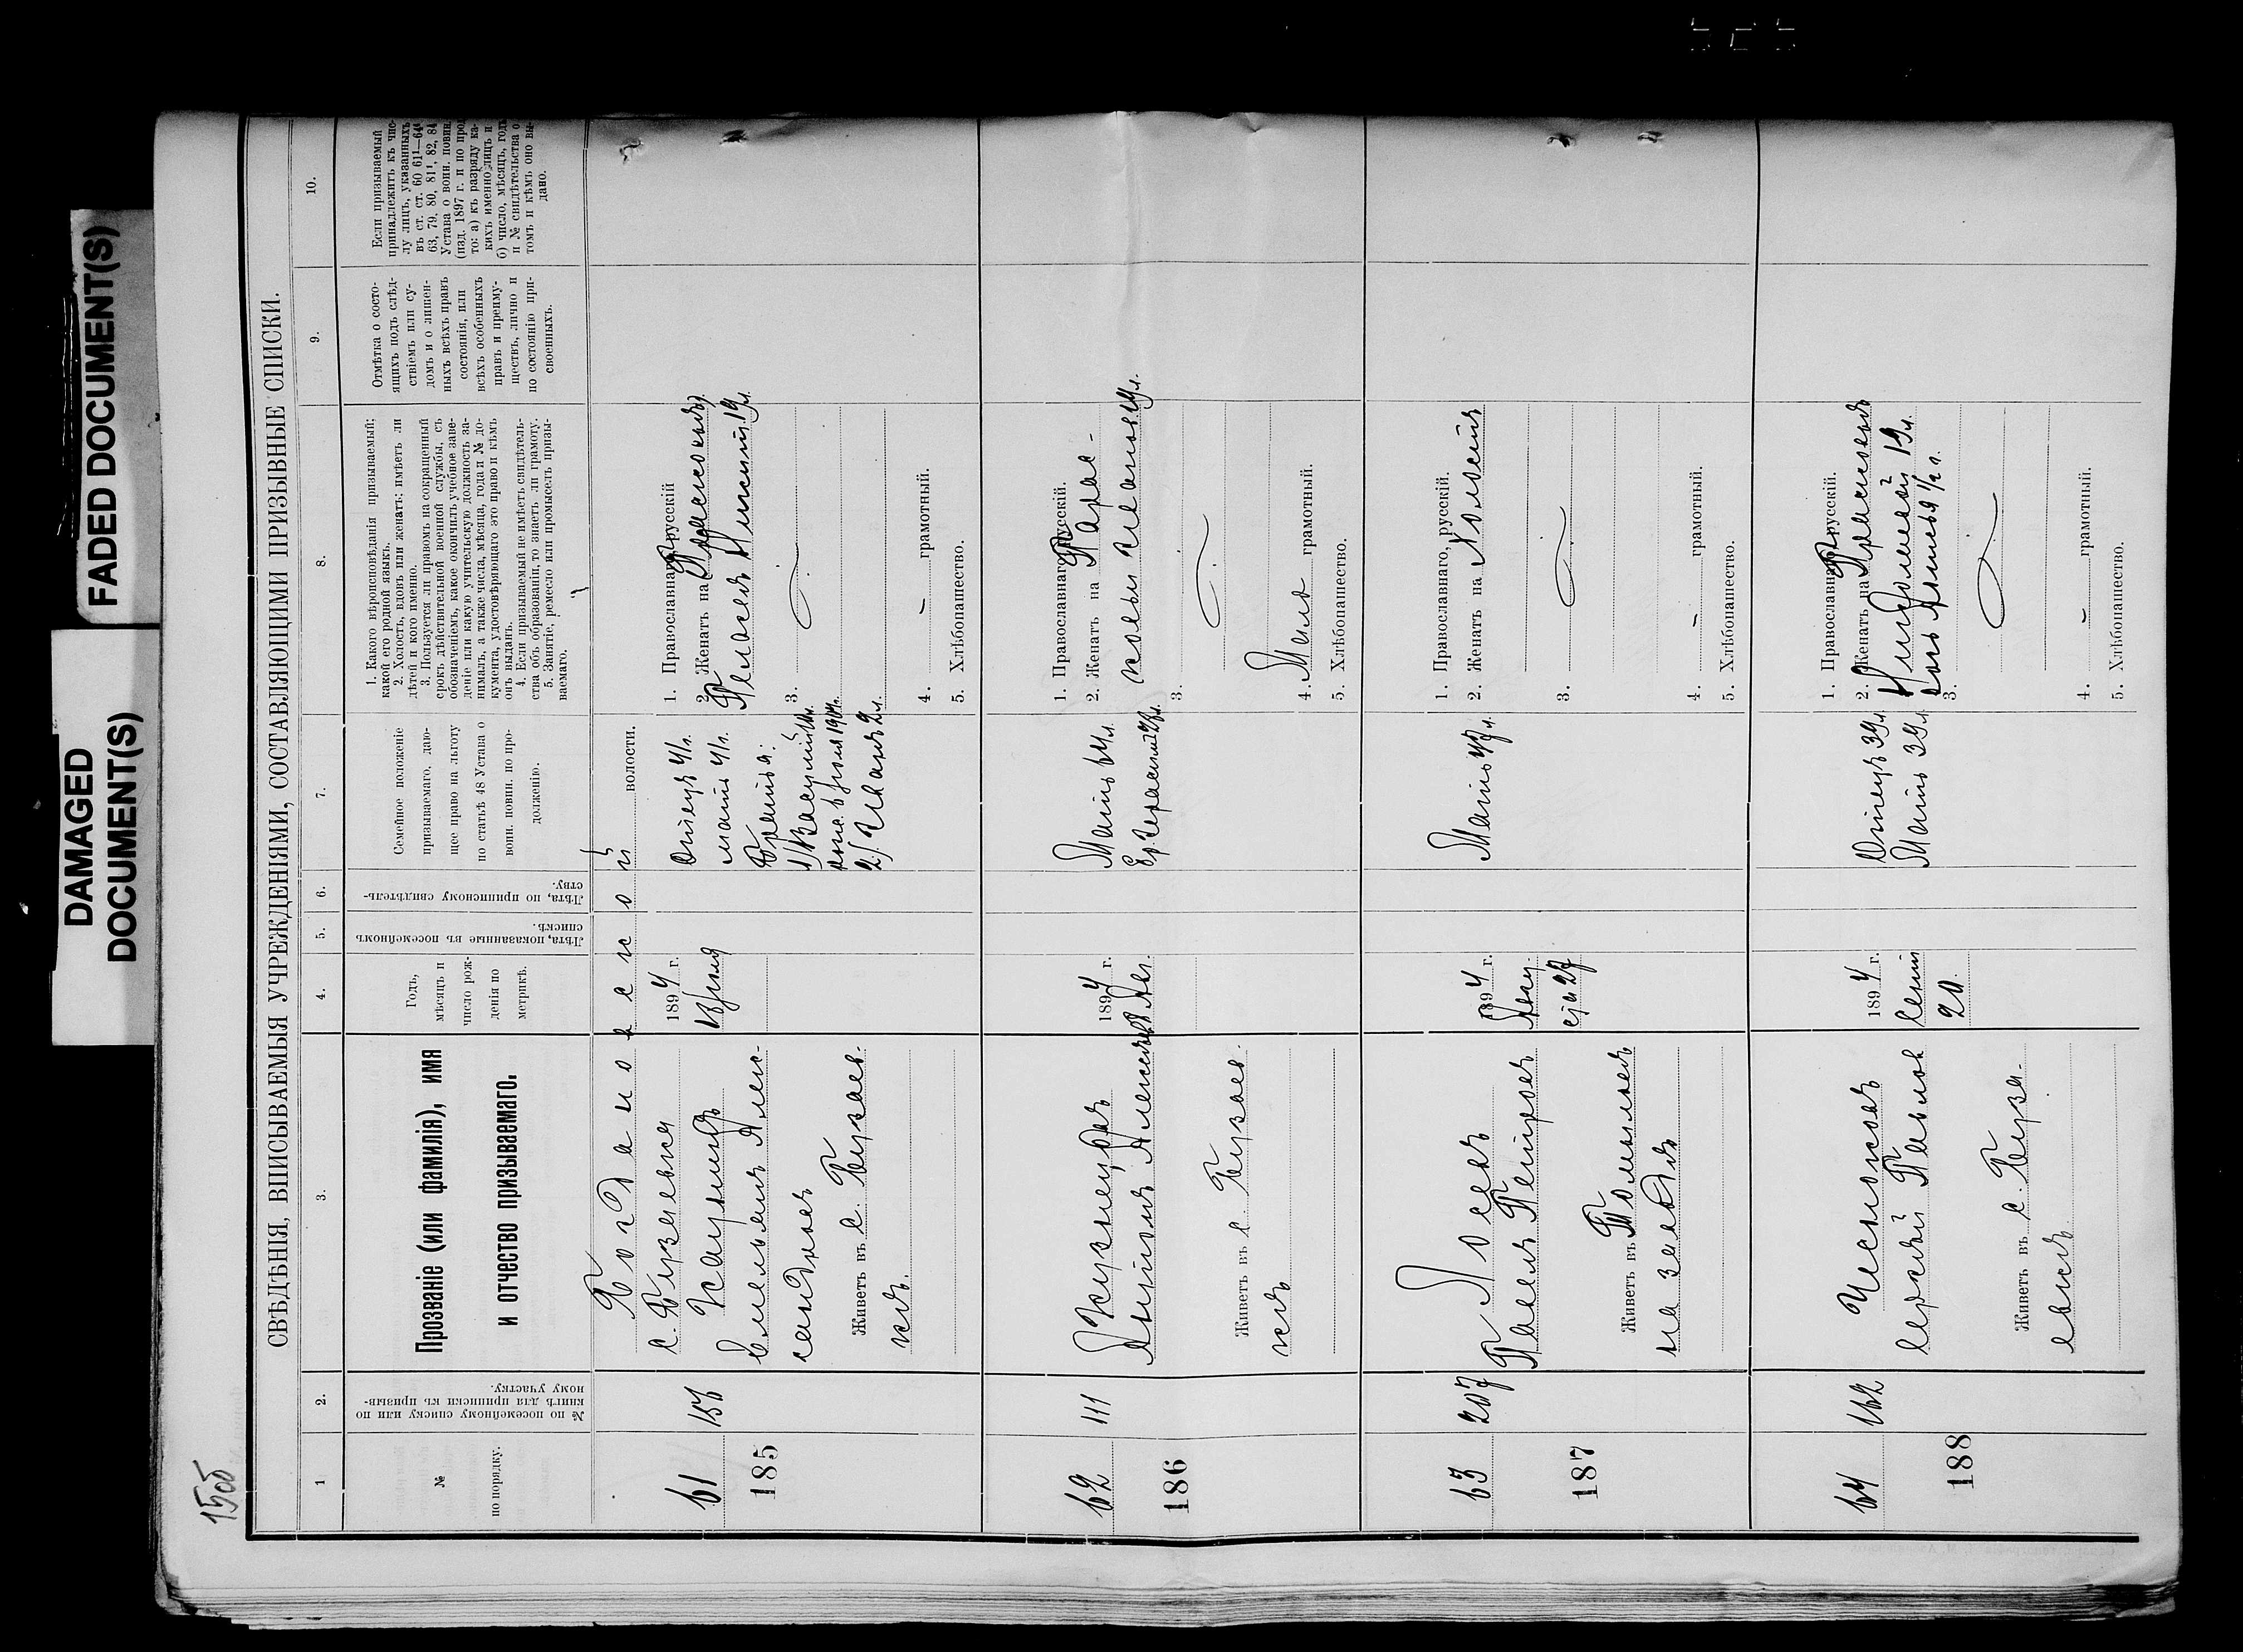 DAMAGED
DOCUMENT(S)
FADED DOCUMENT(S)
15об
СВѢДѢНІЯ, ВПИСЫВАЕМЫЯ УЧРЕЖДЕНІЯМИ, СОСТАВЛЯЮЩИМИ ПРИЗЫВНЫЕ СПИСКИ.
1
2.
3.
4.
5.
6.
7.
8.
9.
10.
№
по порядку.
№ по посемейному списку или по
книгѣ для приписки къ призыв-
ному участку.
Прозваніе (или фамилія), имя
и отчество призываемаго.
Годъ,
мѣсяцъ и
число рож-
денія по
метрикѣ.
Лѣта, показанныя въ посемейномъ
спискѣ.
Лѣта, по приписному свидѣтель-
ству.
Семейное положеніе
призываемаго, даю-
щее право на льготу
по статьѣ 48 Устава о
воин. повин. по про-
долженію.
1. Какого вѣроисповѣданія призываемый;
какой его родной языкъ.
2. Холостъ, вдовъ или женатъ; имѣетъ ли
дѣтей и кого именно.
3. Пользуется ли правомъ на сокращенный
срокъ дѣйствительной военной службы, съ
обозначеніемъ, какое окончилъ учебное заве-
деніе или какую учительскую должность за-
нималъ, а также числа, мѣсяца, года и № до-
кумента, удостовѣряющаго это право и кѣмъ
онъ выданъ.
4. Если призываемый не имѣетъ свидѣтель-
ства объ образованіи, то знаетъ ли грамоту.
5. Занятіе, ремесло или промыселъ призы-
ваемаго.
Отмѣтка о состо-
ящихъ подъ слѣд-
ствіемъ или су-
домъ и о лишен-
ныхъ всѣхъ правъ
состоянія, или
всѣхъ особенныхъ
правъ и преиму-
ществъ, лично и
по состоянію при-
своенныхъ.
Если призываемый
принадлежитъ къ чис-
лу лицъ, указанныхъ
въ ст. ст. 60 61¹—64⁶
63, 79, 80, 81¹, 82, 84
Устава о воин. повин.
(изд. 1897 г. и по прод
то: а) къ разряду ка-
кихъ именно лицъ и
б) число, мѣсяцъ, годъ
и № свидѣтельства о
томъ и кѣмъ оно вы-
дано.
Богдановской волости.
61
185
156
с. Бузаевка
Каузинъ
Емельянъ Алек-
сандровъ
Живетъ въ с. Бузаев-
кѣ.
1894 г.
18 Іюля
Отецъ 41 л.
мать 41 л.
Братья:
2/. Иванъ 2 л.
1. Православнаго, русскій
2. Женатъ на
3.
4. — грамотный.
5. Хлѣбопашество.
62
186
111
Кузнецовъ
Антонъ Алексѣевъ
Живетъ въ с. Бузаев-
кѣ
1894 г.
Мать 64 л.
1. Православнаго, русскій.
2. Женатъ на Парас-
3.
4. Мало грамотный.
5. Хлѣбопашество.
63
187
207
Лосевъ
Павелъ Петровъ
Живетъ въ
на заводѣ
1894 г.
Авгу-
ста 27
Мать 47 л.
1. Православнаго, русскій.
2. Женатъ на Холостъ
3.
4. — грамотный.
5. Хлѣбопашество.
64
188
162
Чесноковъ
Сергѣй Павлов
Живетъ въ с. Буза-
евкѣ.
1894 г.
Сент
20.
Отецъ 39 л.
Мать 39 л.
1. Православнаго, русскій.
2. Женатъ на
3.
4. — грамотный.
5. Хлѣбопашество.